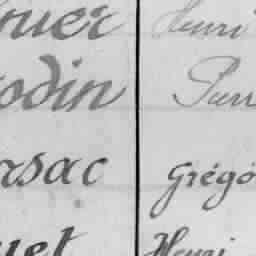 ouer Henri
odin Pierr
rsac Grégo
uet Henri